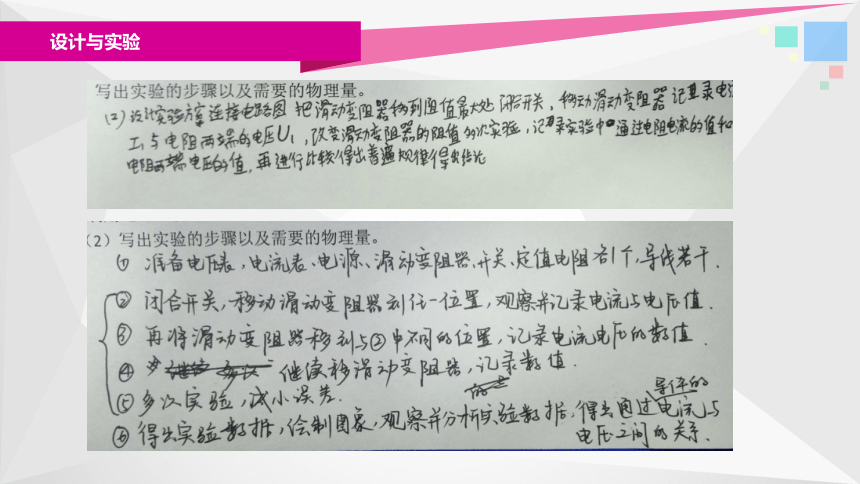 设计与实验
写出实验的步骤以及需要的物理量。
(2)设计实验方案连接电路图 把滑动变阻器移到阻值最大处 闭合开关，移动滑动变阻器 记录电流
I₁与电阻两端的电压U₁，改变滑动变阻器的阻值多次实验，记录实验中通过电阻电流的值和
电阻两端电压的值，再进行比较得出普遍规律得出结论
(2)写出实验的步骤以及需要的物理量。
① 准备电压表，电流表、电源、滑动变阻器、开关、定值电阻各1个，导线若干．
② 闭合开关，移动滑动变阻器到任一位置，观察并记录电流与电压值．
③ 再将滑动变阻器移到与②中不同的位置，记录电流电压的数值．
④ 继续移滑动变阻器，记录数值．
⑤ 多次实验，减小误差．
⑥ 得出实验数据，绘制图象，观察并分析实验数据，得出通过导体的电流与
电压之间的关系．